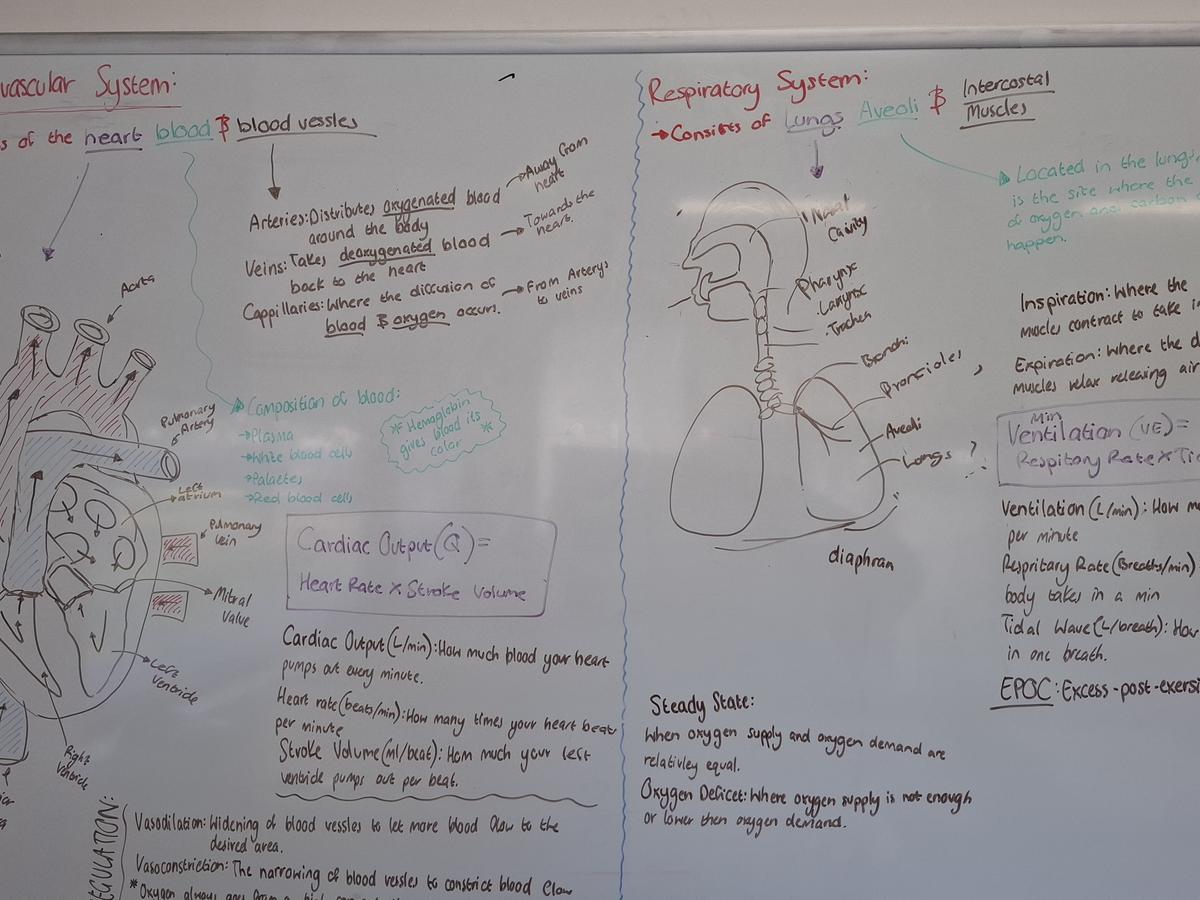 vascular System:
s of the heart blood & blood vessles
Arteries: Distributes oxygenated blood → Away from
around the body heart
Veins: Takes deoxygenated blood → Towards the
back to the heart heart.
Cappillaries: Where the diccusion of → From Arterys
blood & oxygen occurs. to veins
Aorta
Pulmonary
Artery
Left
atrium
Pulmonary
Vein
Mitral
Valve
Left
Ventricle
Right
Ventricle
→ Composition of blood:
→ Plasma
→ White blood cells
→ Palactes
→ Red blood cells
* Hemaglobin
gives blood its
color *
Cardiac Output (Q) =
Heart Rate x Stroke Volume
Cardiac Output (L/min): How much blood your heart
pumps out every minute.
Heart rate (beats/min): How many times your heart beats
per minute
Stroke Volume (ml/beat): Hom much your left
ventricle pumps out per beat.
EGULATION:
Vasodilation: Widening of blood vessles to let more blood flow to the
desired area.
Vasoconstriction: The narrowing of blood vessles to constrict blood flow
* Oxygen always goes from a high
Respiratory System:
→ Consists of Lungs Aveoli & Intercostal
Muscles
Located in the lungs,
is the site where the
of oxygen and carbon
happen.
Nasal
Cavity
Pharynx
Larynx
Trachea
Bronchi
Bronchioles
Aveoli
Lungs ?
diaphram
Inspiration: Where the
muscles contract to take i
Expiration: Where the d
muscles relax releasing air
Min
Ventilation (VE) =
Respitory Rate x Tid
Ventilation (L/min): How m
per minute
Respritary Rate (Breaths/min)
body takes in a min
Tidal Wave (L/breath): How
in one breath.
EPOC: Excess-post-exersi
Steady State:
When oxygen supply and oxygen demand are
relativley equal.
Oxygen Deficet: Where oxygen supply is not enough
or lower then oxygen demand.